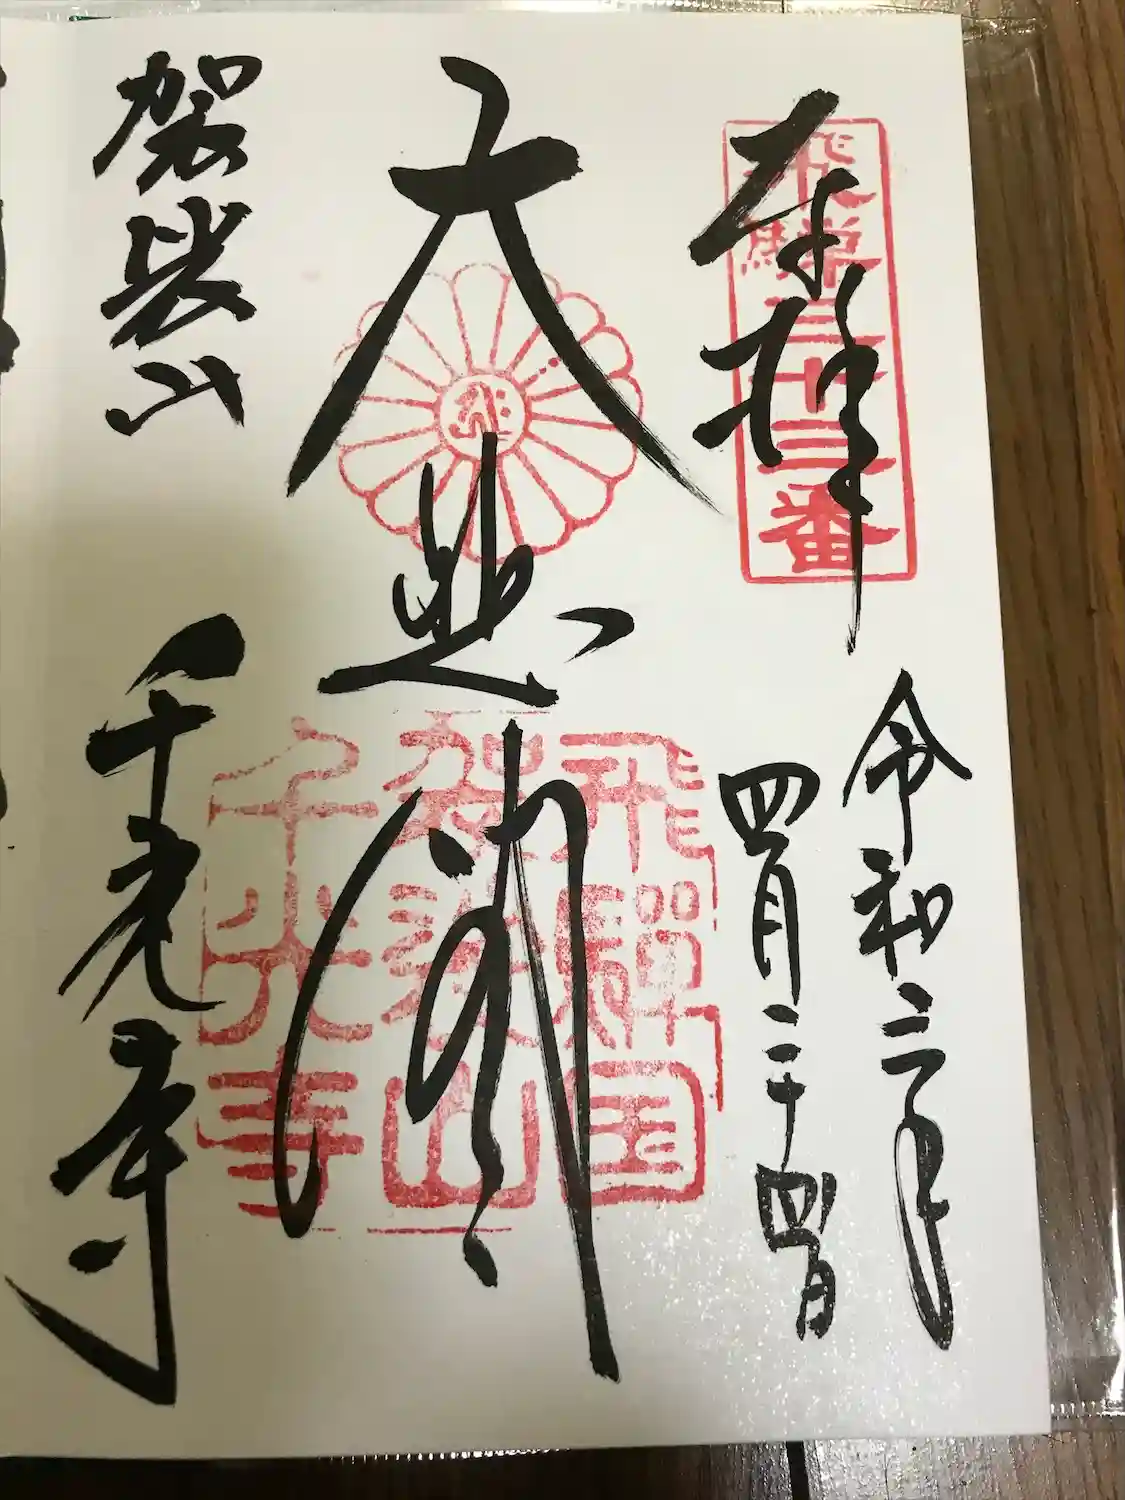 奉拝
飛騨三十三番
令和二年
四月二十四日
大悲閣
飛騨国
袈裟山
千光寺
袈裟山
千光寺